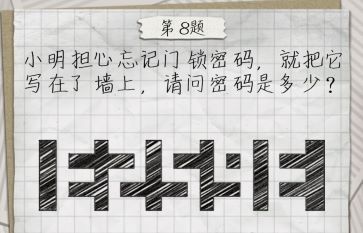 第8题
小明担心忘记门锁密码，就把它
写在了墙上，请问密码是多少？